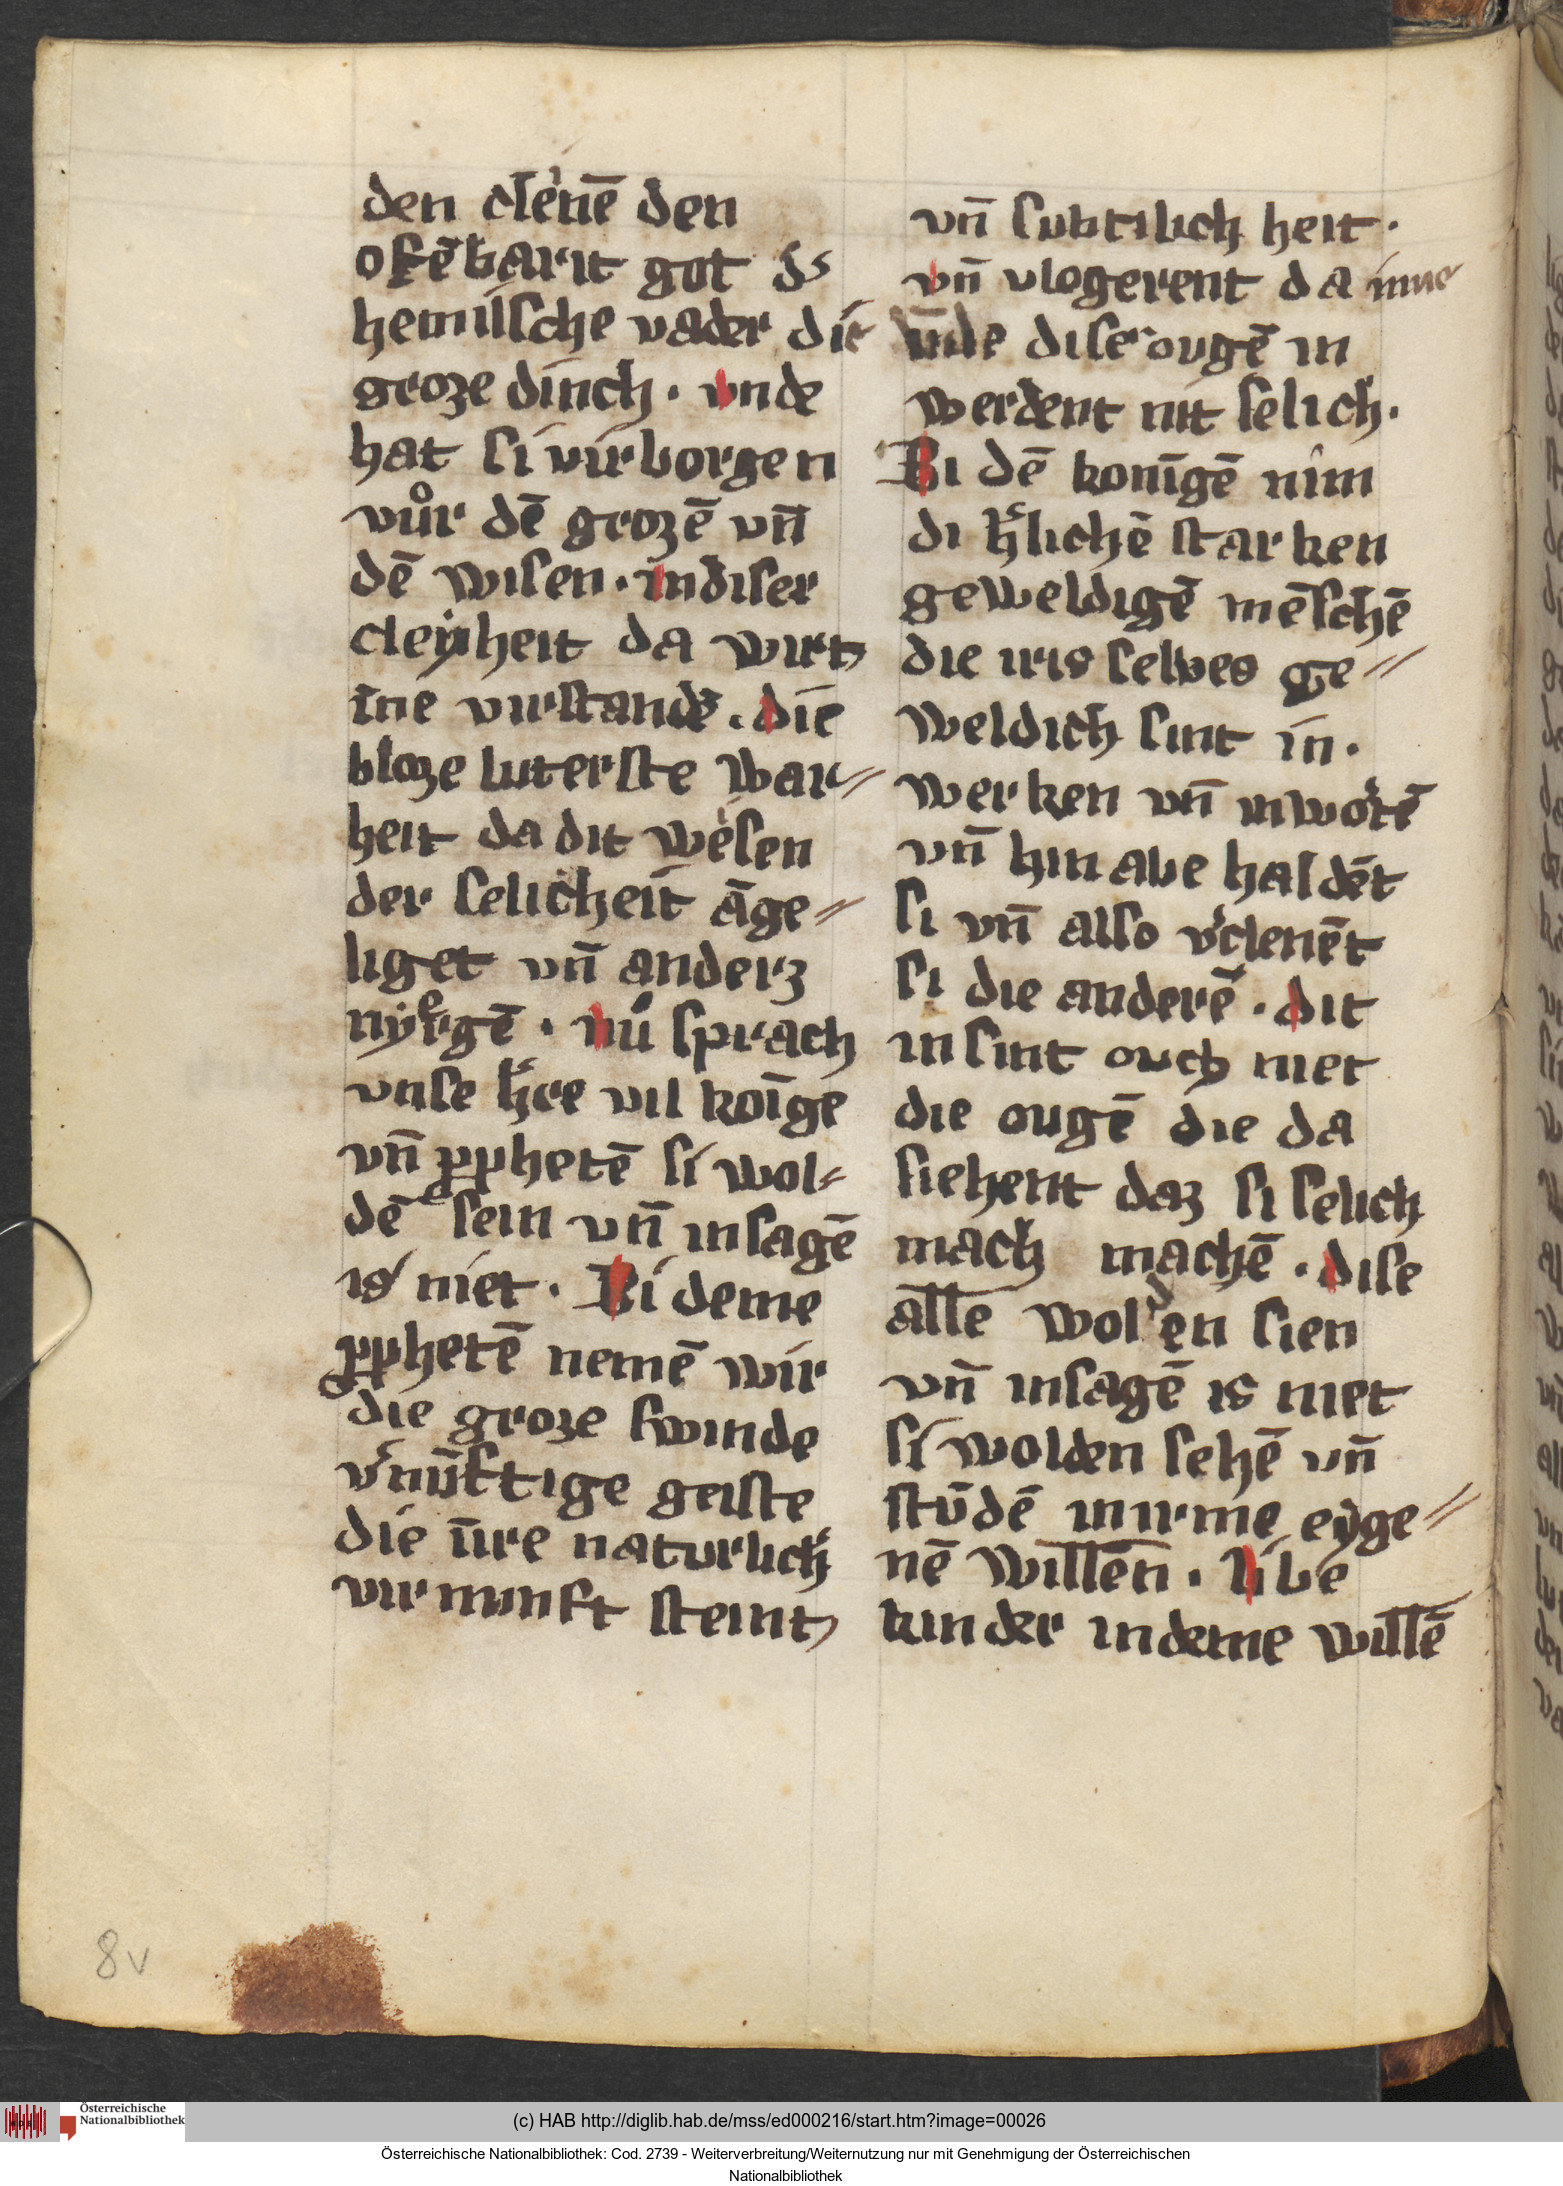 den clēinē den
ofēbarit got d͛
hemilsche vader die
groze dinch . vnde
hat si virborgen
vůr dē grozē vn̄
dē wisen . in diser
cleyheit da wirt
ine virstandē . die
bloze luterste war⸗
heit da dit wesen
der selicheit āge⸗
liget vn̄ anderz
nyͤrgē . nu sprach
vnse h̓re vil koīge
vn̄ ꝓphetē si wol⸗
dē sein vn̄ insagē
is niet . Bi deme
ꝓphetē nemē wir
die groze swinde
v̓nūftige geiste
die in̄re naturlich̓
vir nunft steint
vn̄ subtilich heit .
vn̄ vlogerent da inne
vn̄de diser ougē in
werdent nit selich .
Bi dē konīgē nim
di h̓lichē starken
geweldigē mēschē
die iris selves ge⸗
weldich sint in .
werken vn̄ in wortē
vn̄ hin abe haldēt
si vn̄ also v̓clenēt
si die anderē . dit
in sint ouch niet
die ougē die da
siehent daz si selich
mach machē . dise
alle wolden sien
vn̄ insagē is niet
si wolden sehē vn̄
stūdē in irme eyge⸗
nē willen . libe
kinder in deme willē
8v
Österreichische
Nationalbibliothek
(c) HAB http://diglib.hab.de/mss/ed000216/start.htm?image=00026
Österreichische Nationalbibliothek: Cod. 2739 - Weiterverbreitung/Weiternutzung nur mit Genehmigung der Österreichischen
Nationalbibliothek